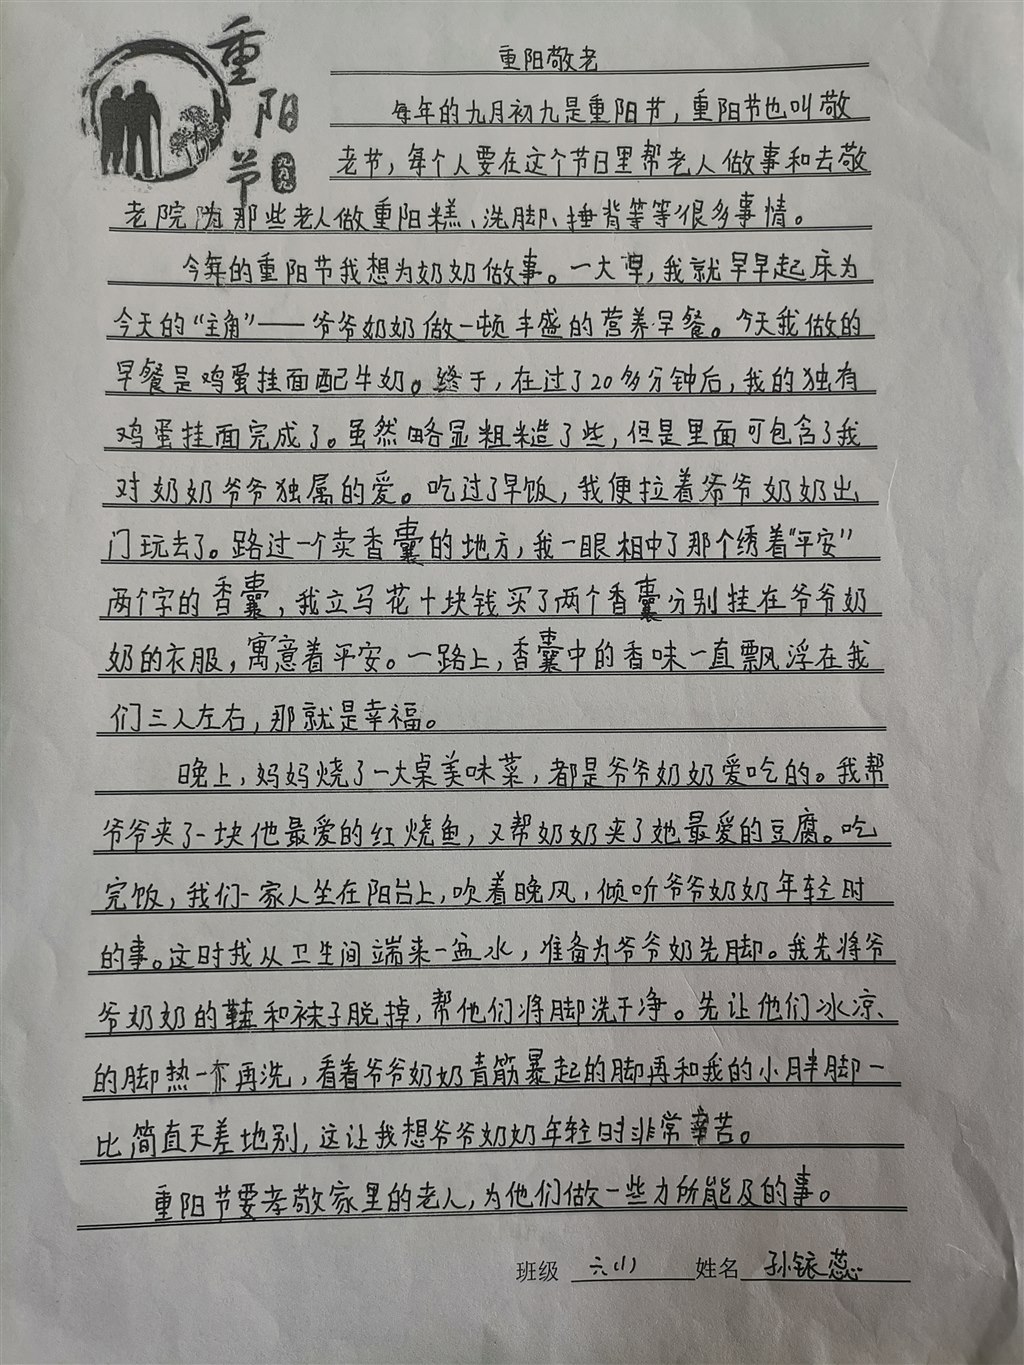 重阳节
九月九
重阳敬老
每年的九月初九是重阳节，重阳节也叫敬
老节，每个人要在这个节日里帮老人做事和去敬
老院为那些老人做重阳糕、洗脚、捶背等等很多事情。
今年的重阳节我想为奶奶做事。一大早，我就早早起床为
今天的“主角”——爷爷奶奶做一顿丰盛的营养早餐。今天我做的
早餐是鸡蛋挂面配牛奶。终于，在过了20多分钟后，我的独有
鸡蛋挂面完成了。虽然略显粗糙了些，但是里面可包含了我
对奶奶爷爷独属的爱。吃过了早饭，我便拉着爷爷奶奶出
门玩去了。路过一个卖香囊的地方，我一眼相中了那个绣着“平安”
两个字的香囊，我立马花十块钱买了两个香囊分别挂在爷爷奶
奶的衣服，寓意着平安。一路上，香囊中的香味一直飘浮在我
们三人左右，那就是幸福。
晚上，妈妈烧了一大桌美味菜，都是爷爷奶奶爱吃的。我帮
爷爷夹了一块他最爱的红烧鱼，又帮奶奶夹了她最爱的豆腐。吃
完饭，我们一家人坐在阳台上，吹着晚风，倾听爷爷奶奶年轻时
的事。这时我从卫生间端来一盆水，准备为爷爷奶洗脚。我先将爷
爷奶奶的鞋和袜子脱掉，帮他们将脚洗干净。先让他们冰凉
的脚热一下再洗，看着爷爷奶奶青筋暴起的脚再和我的小胖脚一
比简直天差地别，这让我想爷爷奶奶年轻时非常辛苦。
重阳节要孝敬家里的老人，为他们做一些力所能及的事。
班级 六(1) 姓名 孙铱蕊